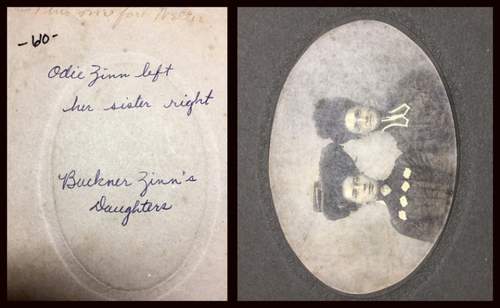 -60-
Odie Zinn left
her sister right
Buckner Zinn's
Daughters